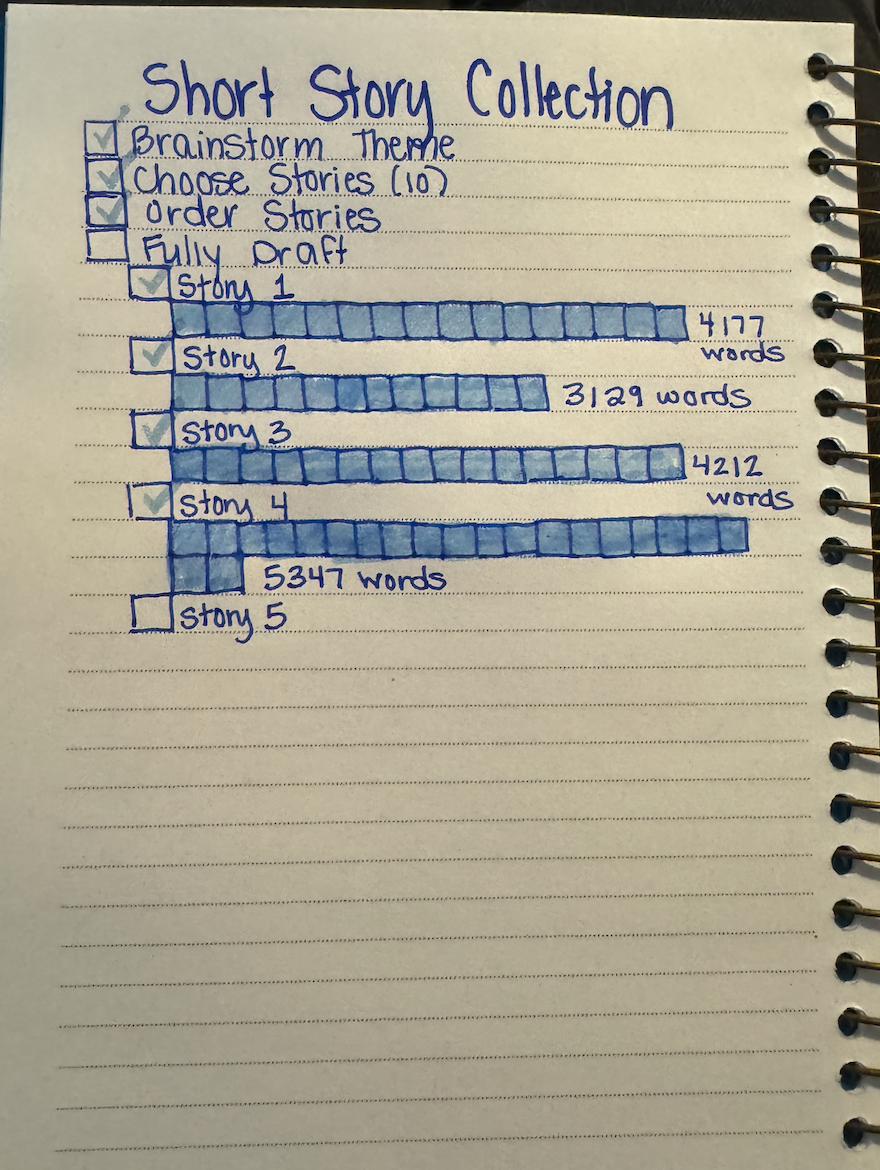 Short Story Collection
Brainstorm Theme
Choose Stories (10)
Order Stories
Fully Draft
Story 1
4177
words
Story 2
3129 words
Story 3
4212
words
Story 4
5347 words
Story 5